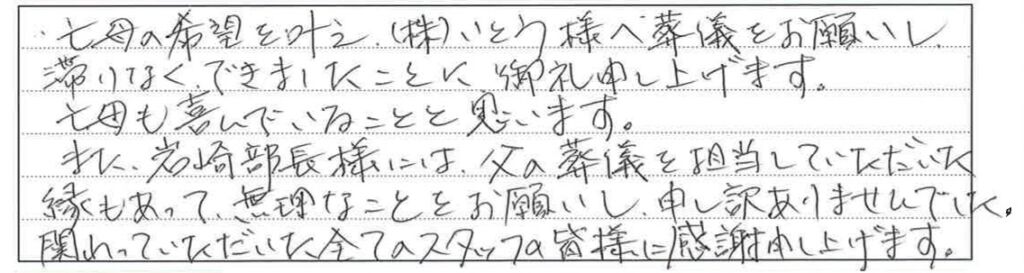 亡母の希望を叶え、(株)いとう様へ葬儀をお願いし、
滞りなく、できましたことに御礼申し上げます。
亡母も喜んでいることと思います。
また、岩崎部長様には、父の葬儀を担当していただいた
縁もあって、無理なことをお願いし、申し訳ありませんでした。
関わっていただいた全てのスタッフの皆様に感謝申し上げます。